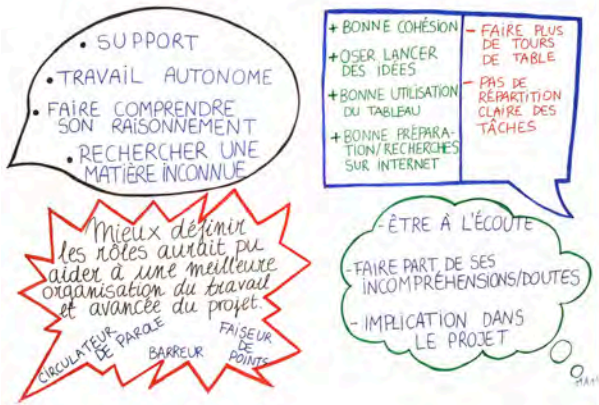 • SUPPORT
• TRAVAIL AUTONOME
• FAIRE COMPRENDRE
SON RAISONNEMENT
• RECHERCHER UNE
MATIÈRE INCONNUE
+ BONNE COHÉSION
+ OSER LANCER
DES IDÉES
+ BONNE UTILISATION
DU TABLEAU
+ BONNE PRÉPARA-
TION/RECHERCHES
SUR INTERNET
- FAIRE PLUS
DE TOURS
DE TABLE
- PAS DE
RÉPARTITION
CLAIRE DES
TÂCHES
Mieux définir
les rôles aurait pu
aider à une meilleure
organisation du travail
et avancée du projet.
CIRCULATEUR
DE PAROLE
BARREUR
FAISEUR
DE
POINTS
- ÊTRE À L'ÉCOUTE
- FAIRE PART DE SES
INCOMPRÉHENSIONS/DOUTES
- IMPLICATION DANS
LE PROJET